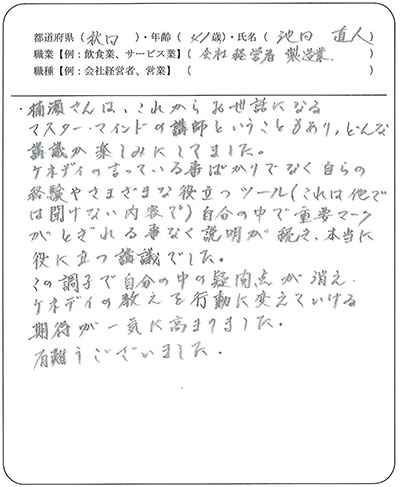 都道府県（秋田）・年齢（41歳）・氏名（池田 直人）
職業【例：飲食業、サービス業】（会社経営者 製造業．）
職種【例：会社経営者、営業】（ ）
・楠瀬さんは、これからお世話になる
マスター・マインドの講師ということもあり、どんな
講議か楽しみにしてました。
ケネディの言っている事ばかりでなく自らの
経験やさまざまな役立つツール（これは他で
は聞けない内容で）自分の中で重要マーク
がとぎれる事なく説明が続き、本当に
役に立つ講議でした。
この調子で自分の中の疑問点が消え．
ケネディの教えを行動に変えていける
期待が一気に高まりました。
有難うございました．